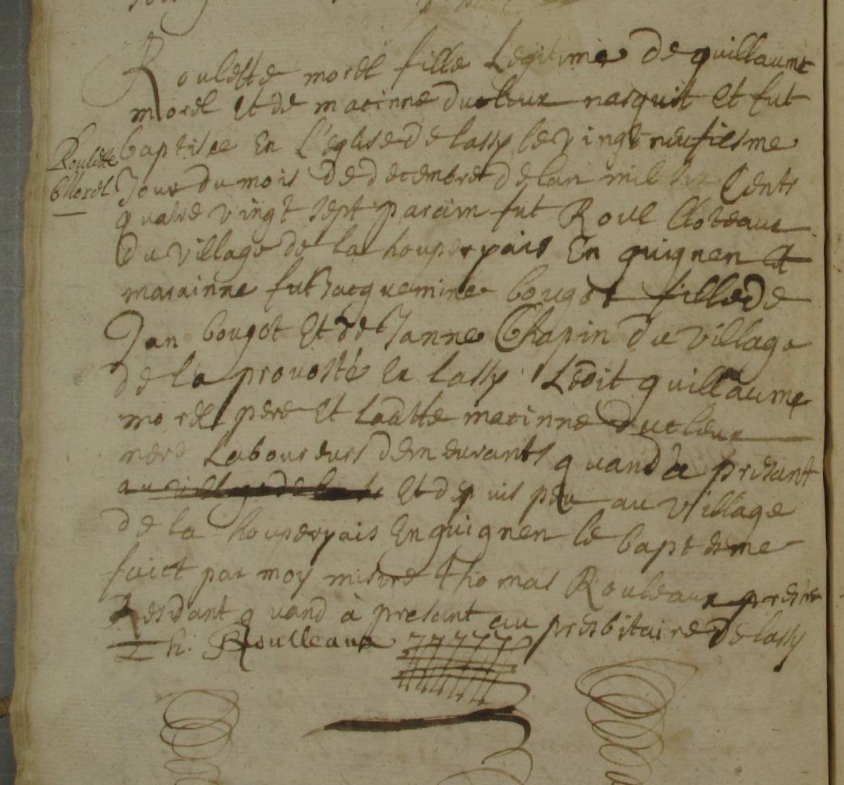 Roulette morel fille Legitime de guillaume
morel Et de matinne ducleux nasquit et fut
baptisee En L'eglise de lassy le vingt neufiesme
Roulette
Morel
Jour du mois de decembre de lan mil six Cents
quatre vingt sept parain fut Roul Cloteaux
du village de la houperpais En guignen et
marainne fut Jacquemine bougot fille de
Jan bougot Et de Janne Chapin du village
de la provosté En lassy Ledit guillaume
morel pere Et Laditte matinne ducleux
mere Laboureurs demeurants quand à présant
Et depuis peu au village
de la houperpais En guignen le baptesme
faict par moy misire thomas Rouleaux prestre
Residant quand à présant au presbitaire de lassy
Th. Roulleaux